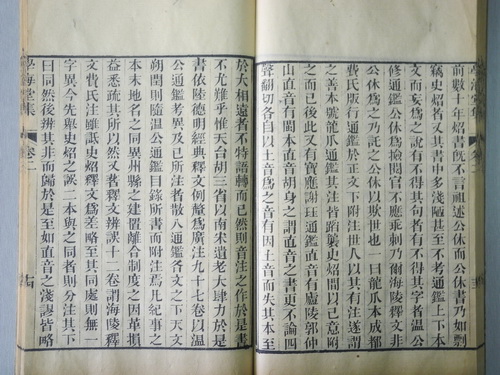 前數十年炤書旣不言祖述公休而公休書乃如剽
竊史炤者又其書中多淺陋甚至不考通鑑上下本
文而妄爲之說有不得其句者有不得其字者溫公
修通鑑公休爲檢閱官不應乖剌乃爾海陵釋文非
公休爲之乃託之公休以欺世也一曰龍爪本成都
費氏版行通鑑於正文下附注世人以其有注遂謂
之善本號龍爪通鑑其注皆蹈襲史炤間以己意附
之而已後此又有寶應謝珏通鑑直音有廬陵郭仲
山直音有閩本直音胡身之謂直音之書更不論四
聲翻切各自以土音爲之音有因土音而失其本至
於大相遠者不特語轉而已然則音注之作於是書
不尤難乎惟天台胡三省以南宋遺老大肆力於是
書依陸德明經典釋文例釐爲廣注九十七卷以溫
公通鑑考異及已所注者散入通鑑各文之下天文
朔閏則隨溫公通鑑目錄所書而附注焉凡紀事之
本末地名之同異州縣之建置離合制度之因革損
益悉疏其所以然又著釋文辨誤十二卷謂海陵釋
文費氏注雖視史炤釋文爲差略至其同處則無一
字異今先舉史炤之誤二本與之同者則分注其下
曰同然後辨其非而歸於是至如直音之淺謬皆略
學海堂集
卷二